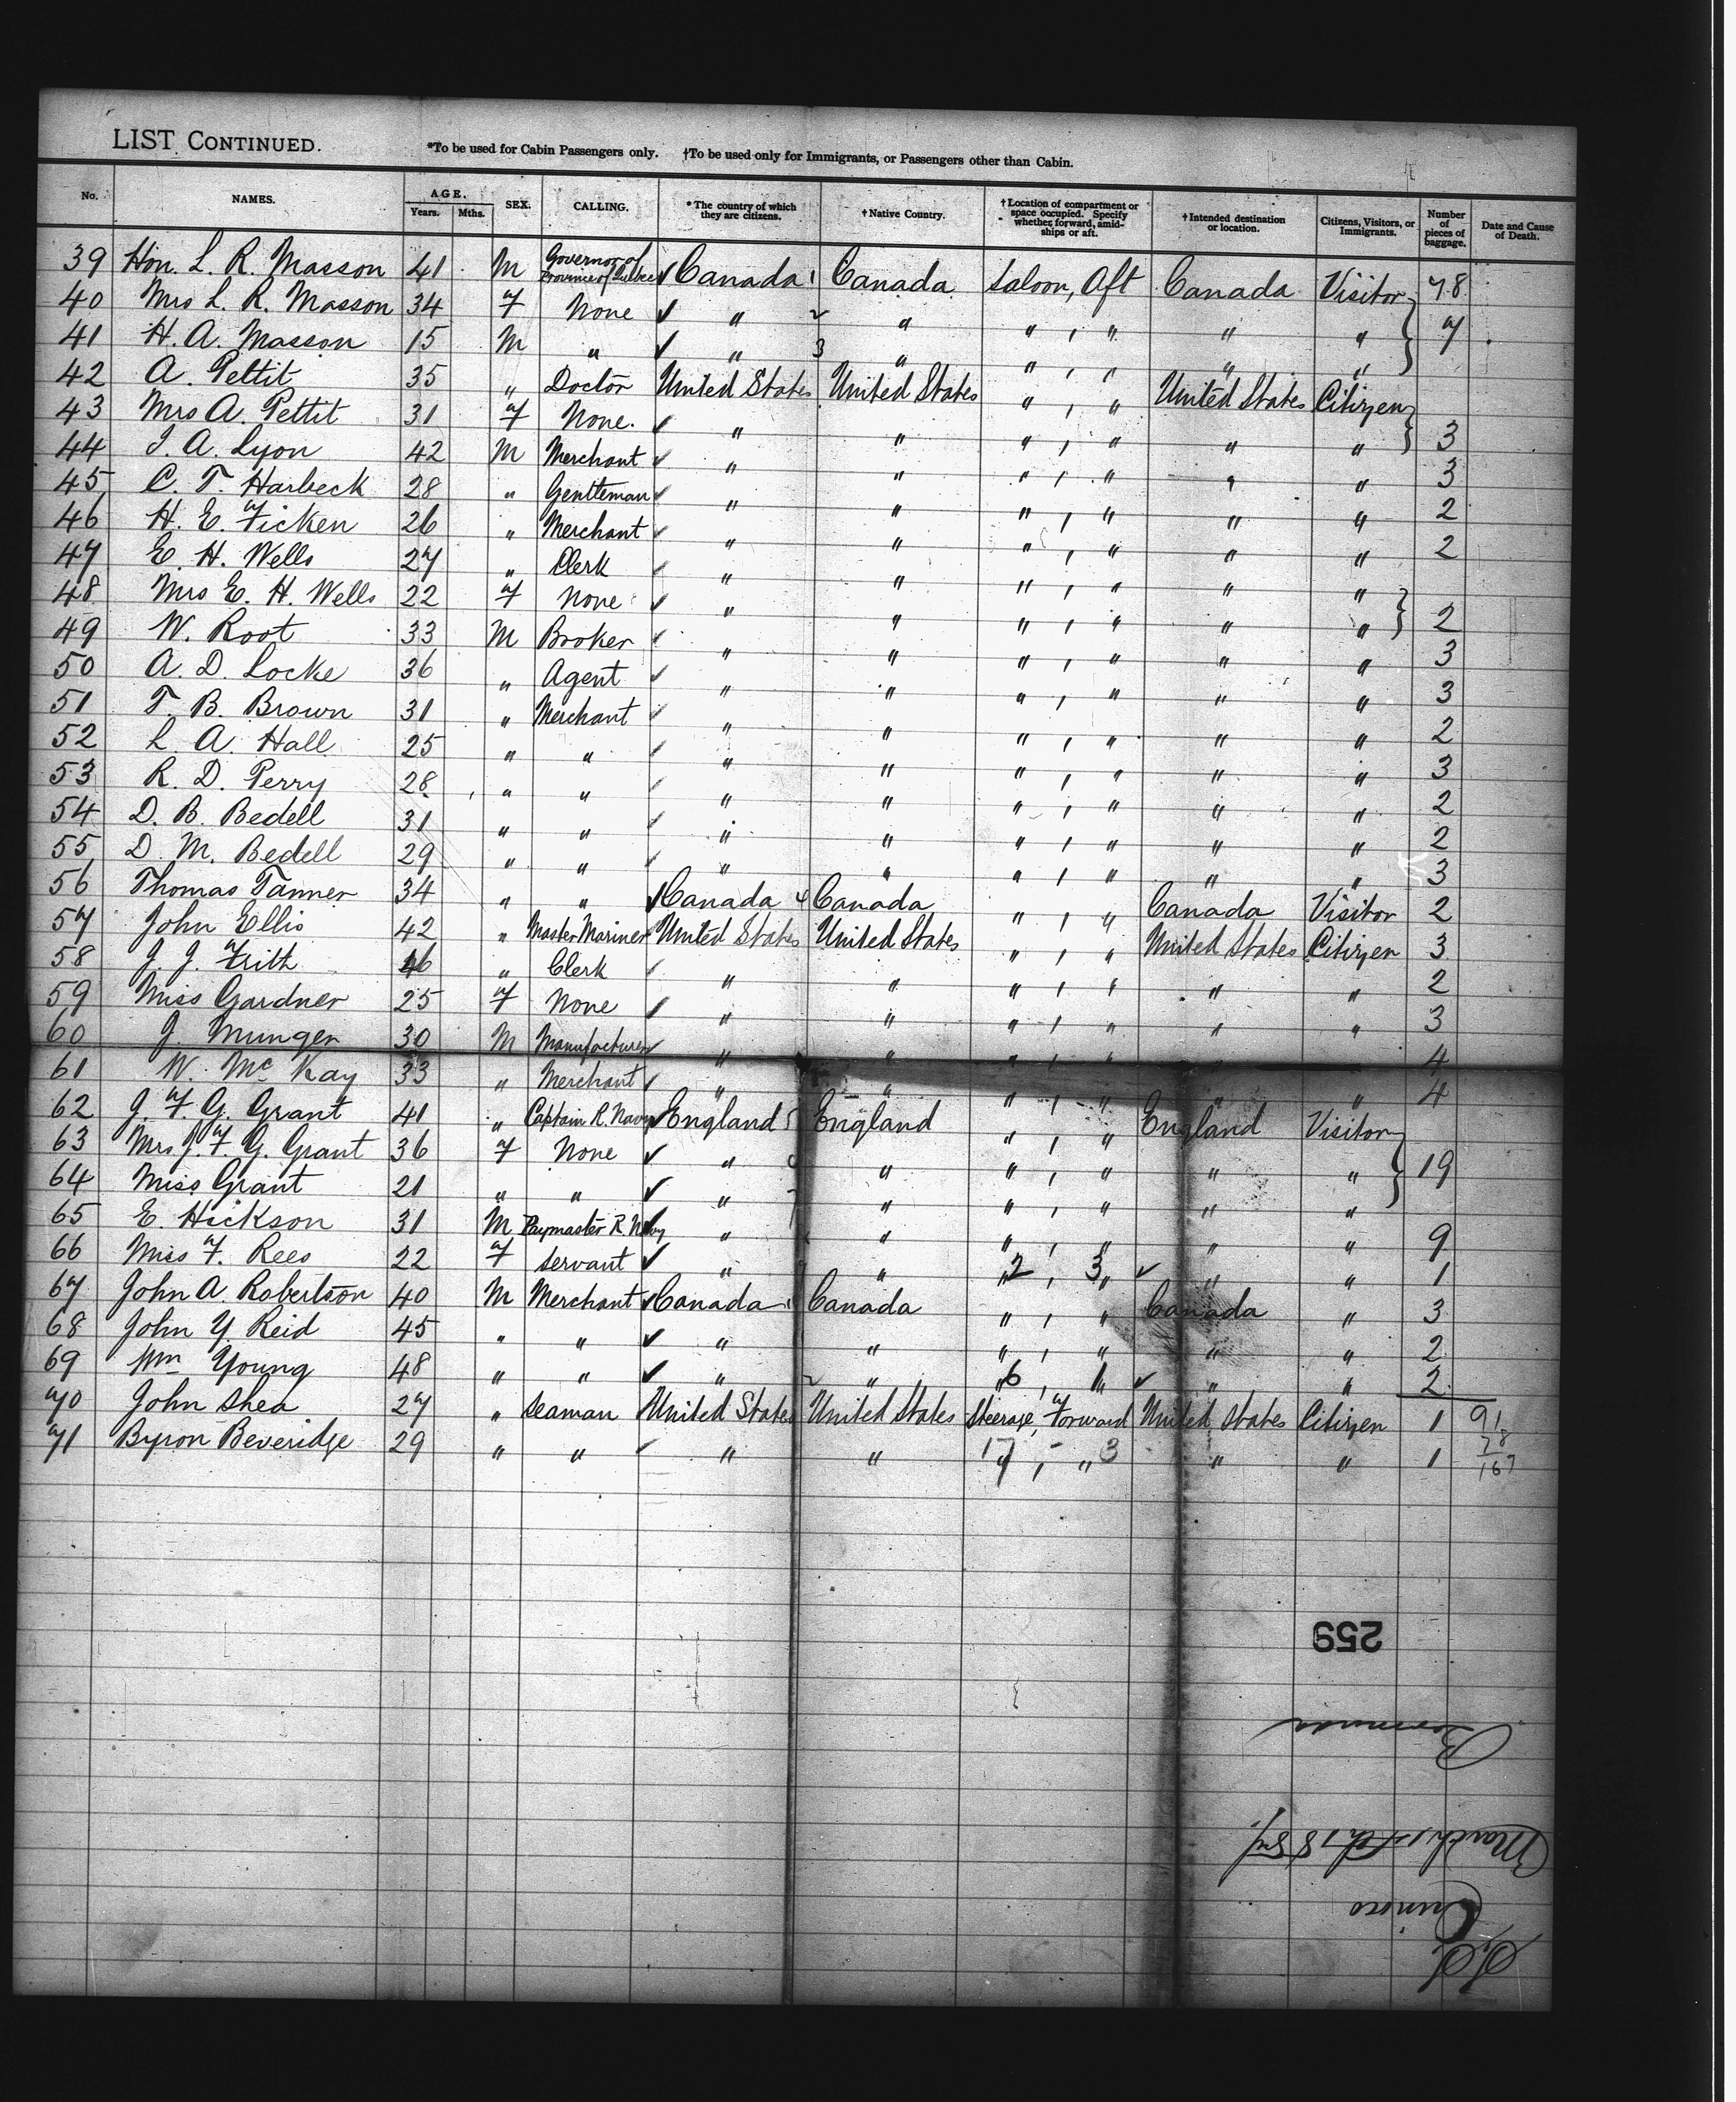 LIST CONTINUED. *To be used for Cabin Passengers only. †To be used only for Immigrants, or Passengers other than Cabin.
No. NAMES. AGE. Years. Mths. SEX. CALLING. * The country of which they are citizens. † Native Country. † Location of compartment or space occupied. Specify whether forward, amidships or aft. † Intended destination or location. Citizens, Visitors, or Immigrants. Number of pieces of baggage. Date and Cause of Death.
39 Hon. L. R. Masson 41 M Governor of Province of Quebec Canada 1 Canada Saloon, Aft Canada Visitor 78
40 Mrs L. R. Masson 34 F None " 2 " " , " " " 7
41 H. A. Masson 15 M " " 3 " " , " " "
42 A. Pettit 35 " Doctor United States United States " , " United States Citizen
43 Mrs A. Pettit 31 F None. " " " , " " " 3
44 J. A. Lyon 42 M Merchant " " " , " " " 3
45 C. T. Harbeck 28 " Gentleman " " " , " " " 2
46 H. E. Ficken 26 " Merchant " " " , " " " 2
47 E. H. Wells 27 " Clerk " " " , " " "
48 Mrs E. H. Wells 22 F None " " " , " " " 2
49 W. Root 33 M Broker " " " , " " " 3
50 A. D. Locke 36 " Agent " " " , " " " 3
51 T. B. Brown 31 " Merchant " " " , " " " 2
52 L. A. Hall 25 " " " " " , " " " 3
53 R. D. Perry 28 " " " " " , " " " 2
54 D. B. Bedell 31 " " " " " , " " " 2
55 D. M. Bedell 29 " " " " " , " " " 3
56 Thomas Tanner 34 " " Canada 4 Canada " , " Canada Visitor 2
57 John Ellis 42 " Master Mariner United States United States " , " United States Citizen 3
58 J. J. Frith 46 " Clerk " " " , " " " 2
59 Miss Gardner 25 F None " " " , " " " 3
60 J. Munger 30 M Manufacturer " " " , " 4
61 W. McKay 33 " Merchant " " " , " " " 4
62 J. F. G. Grant 41 " Captain R. Navy England 5 England " , " England Visitor
63 Mrs J. F. G. Grant 36 F None " " " , " " " 19
64 Miss Grant 21 " " " " " , " " "
65 E. Hickson 31 M Paymaster R. Navy " " " , " " " 9
66 Miss F. Rees 22 F Servant " " 2 , 3 " " 1
67 John A. Robertson 40 M Merchant Canada Canada " , " Canada " 3
68 John Y. Reid 45 " " " " " , " " " 2
69 Wm Young 48 " " " " 6 , 1 " " 2
70 John Shea 27 " Seaman United States United States Steerage, Forward United States Citizen 1 91
71 Byron Beveridge 29 " " " " 17 - 3 " " 1 78
167
259
Bermuda
March 14th 1887.
Orinoco
S.S.